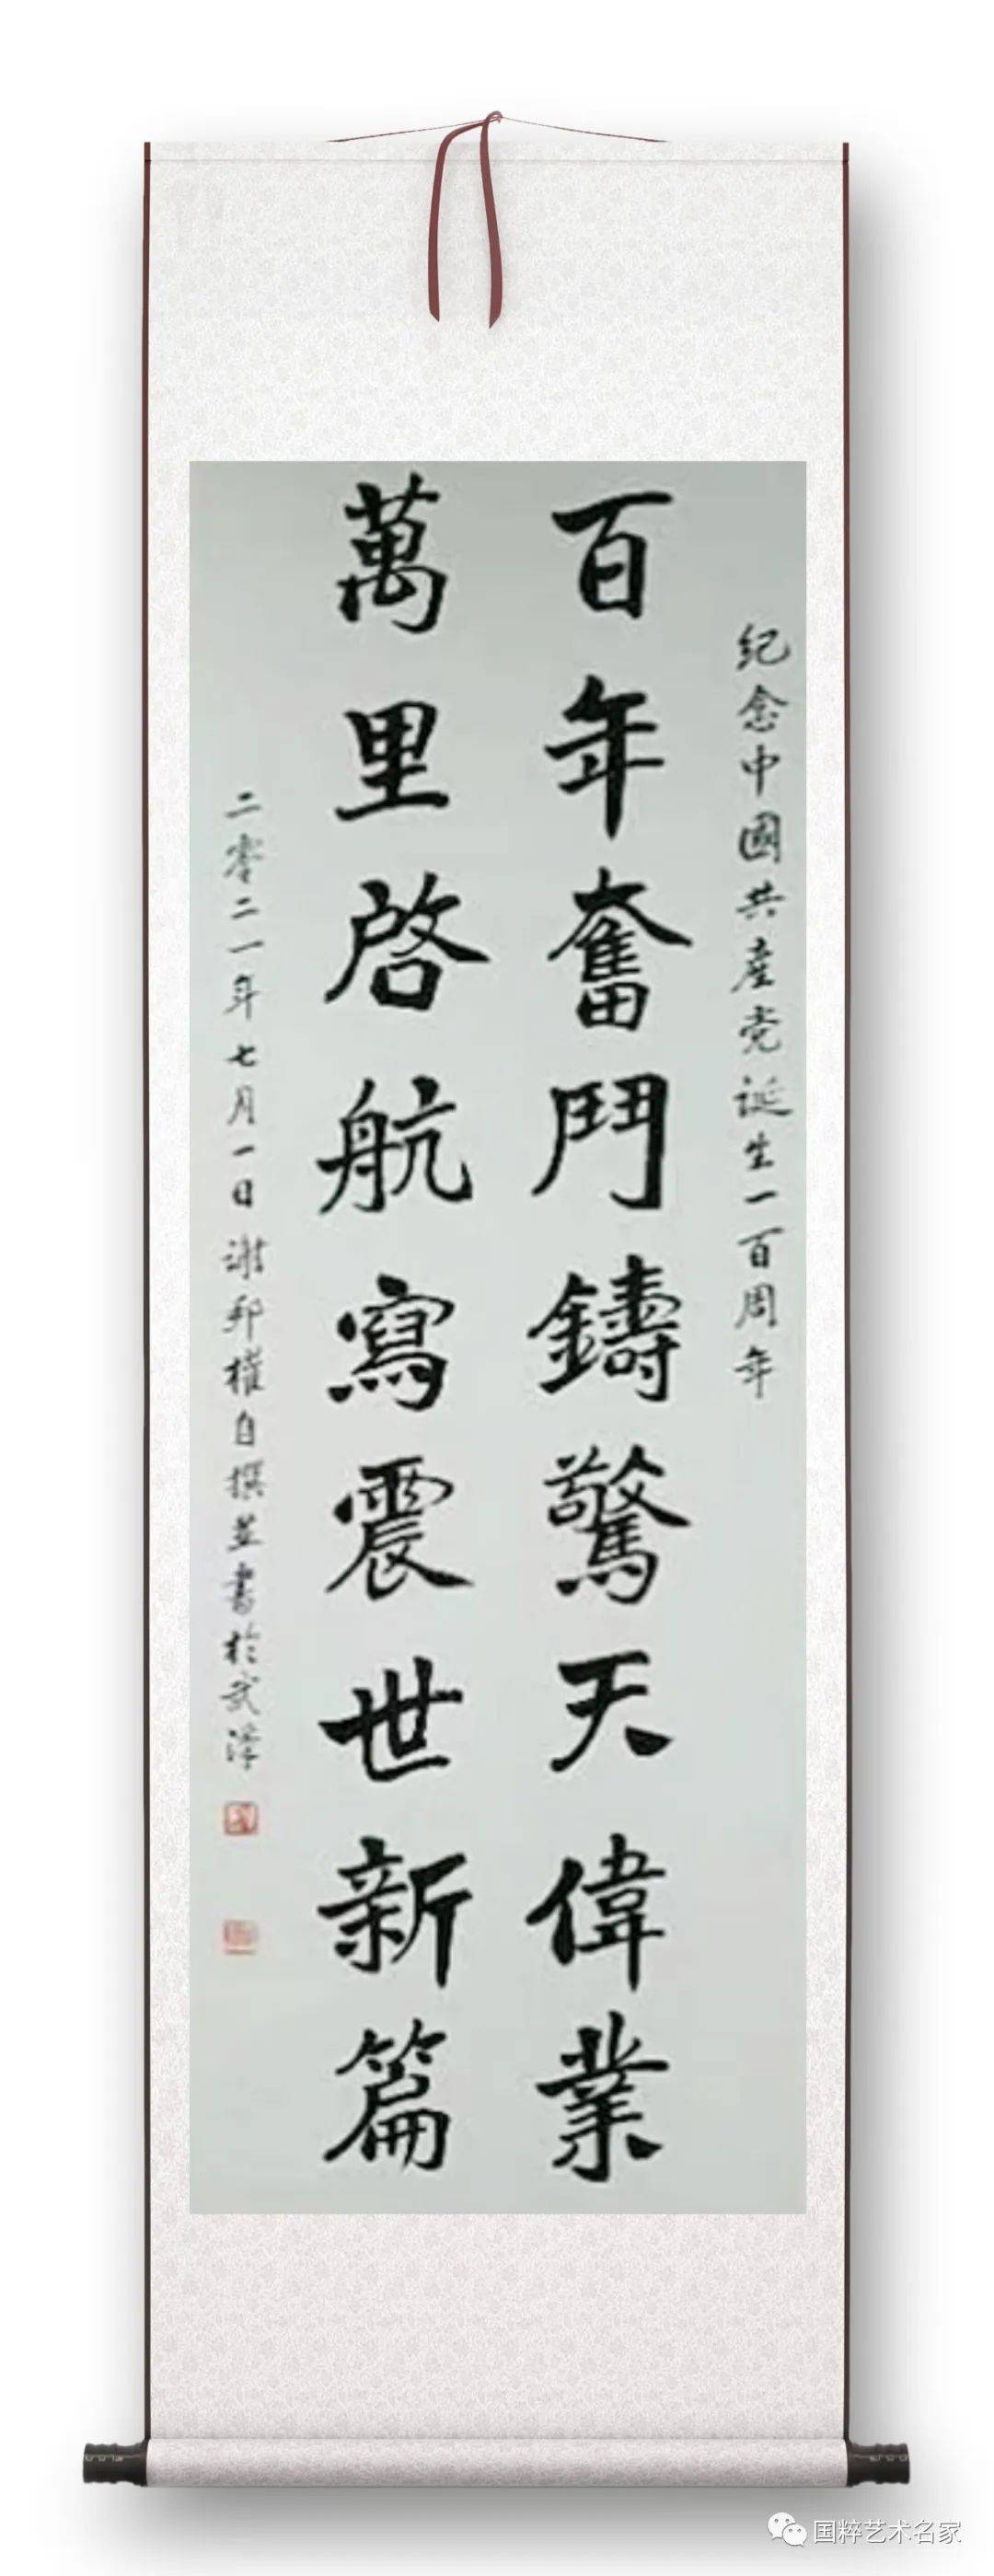 纪念中國共産党诞生一百周年
百年奮鬥鑄驚天偉業
萬里啓航寫震世新篇
二零二一年七月一日谢邦權自撰並書於武漢
国粹艺术名家